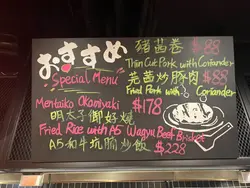 おすすめ
Special Menu
豬茜卷 $88
Thin Cut Pork with Coriander
芫茜炒豚肉 $88
Fried Pork with Coriander
Mentaiko $178
明太子御好燒
Fried Rice with A5 Wagyu Beef Brisket
A5和牛坑腩炒飯 $228